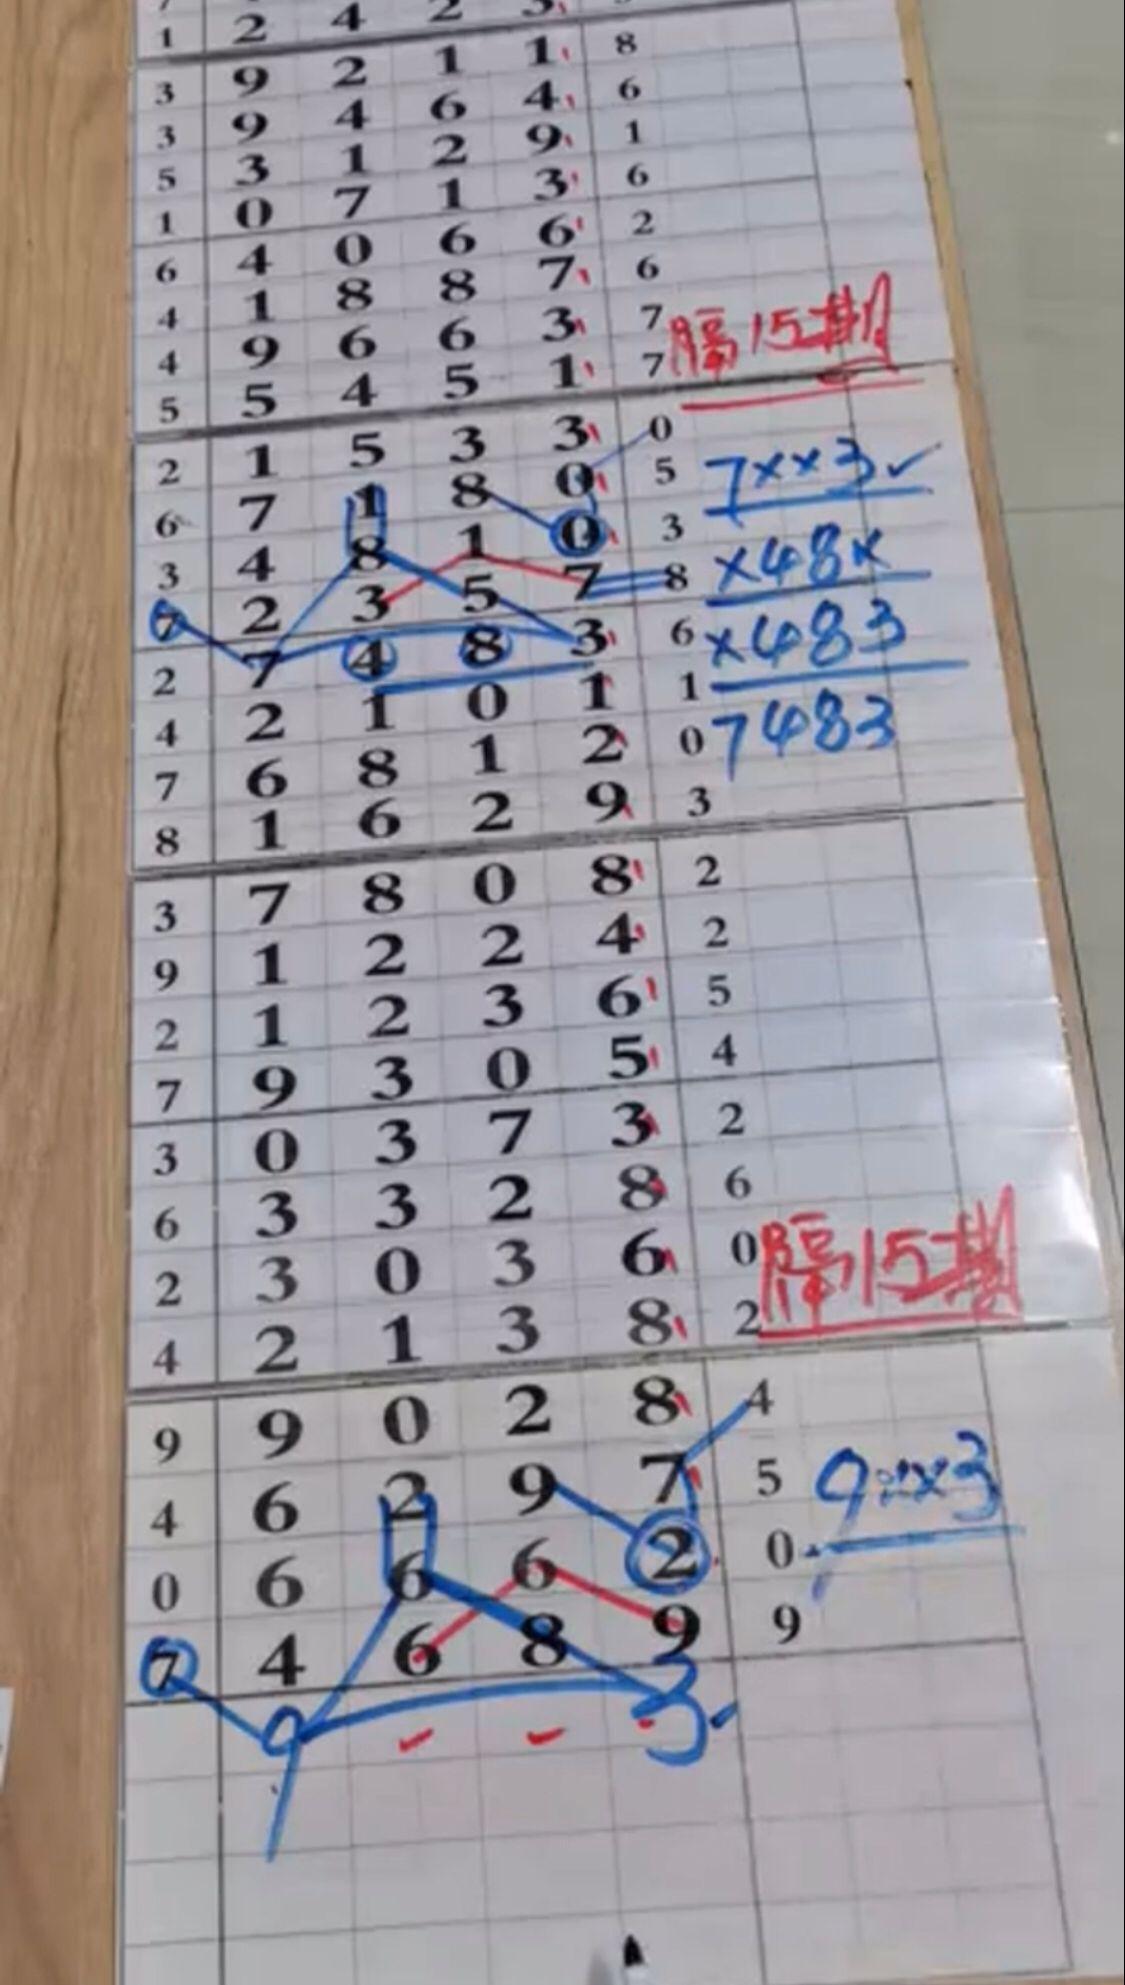 1 2 4 2 3
3 9 2 1 1 8
3 9 4 6 4 6
5 3 1 2 9 1
1 0 7 1 3 6
6 4 0 6 6 2
4 1 8 8 7 6
4 9 6 6 3 7
5 5 4 5 1 7 隔15期
2 1 5 3 3 0
6 7 1 8 0 5 7××3✓
3 4 8 1 0 3
7 2 3 5 7 8 ×48×
2 7 4 8 3 6 ×483
4 2 1 0 1 1
7 6 8 1 2 0 7483
8 1 6 2 9 3
3 7 8 0 8 2
9 1 2 2 4 2
2 1 2 3 6 5
7 9 3 0 5 4
3 0 3 7 3 2
6 3 3 2 8 6
2 3 0 3 6 0 隔15期
4 2 1 3 8 2
9 9 0 2 8 4
4 6 2 9 7 5 9××3
0 6 6 6 2 0
7 4 6 8 9 9
9 3